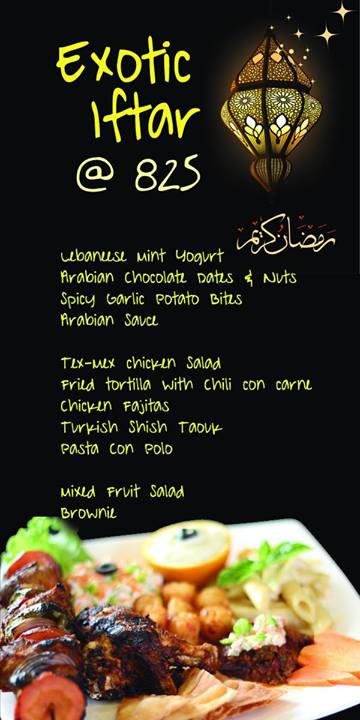 Exotic
Iftar
@ 825
رمضان كريم
Lebaneese Mint Yogurt
Arabian Chocolate Dates & Nuts
Spicy Garlic Potato Bites
Arabian Sauce
Tex-Mex chicken Salad
Fried tortilla With Chili con carne
Chicken Fajitas
Turkish Shish Taouk
Pasta Con Polo
Mixed Fruit Salad
Brownie